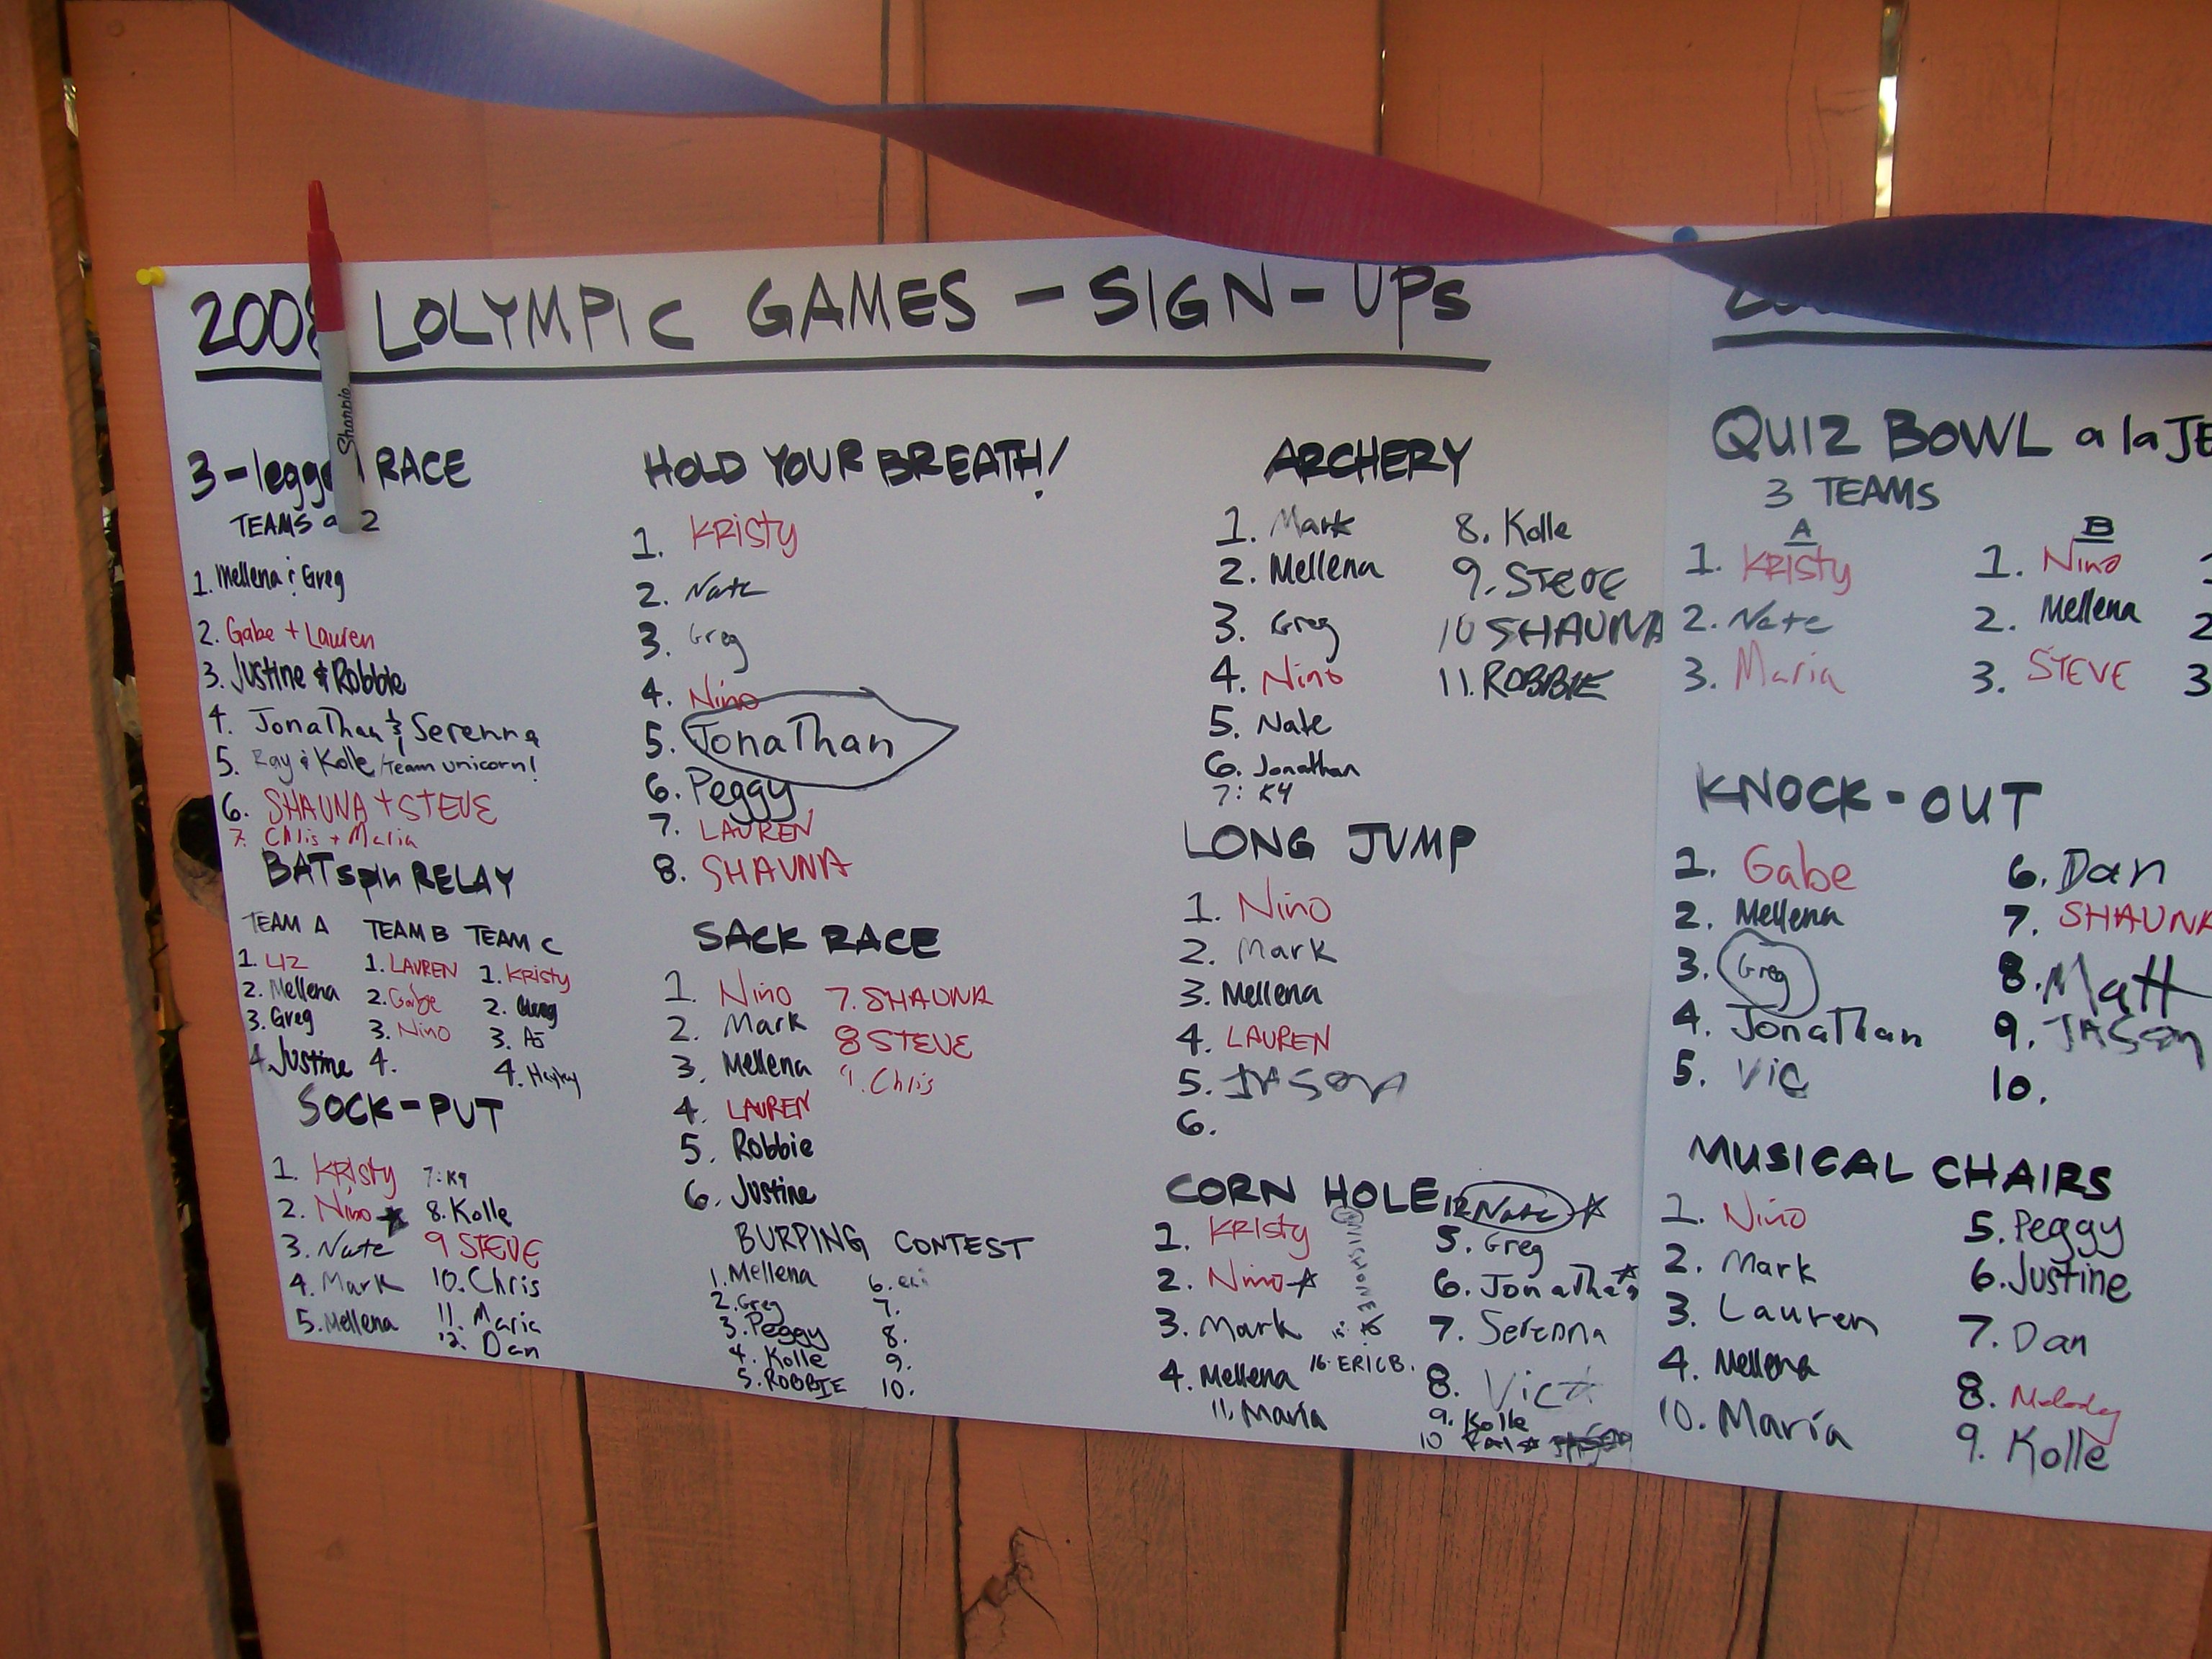 2008 LOLYMPIC GAMES - SIGN-UPS
3-legge RACE
TEAMS 2
1. Mellena & Greg
2. Gabe + Lauren
3. Justine & Robbie
4. Jonathan & Serenna
5. Ray & Kolle/Team unicorn!
6. SHAUNA + STEVE
7. Chris + Maria
BAT spin RELAY
TEAM A
1. LIZ
2. Mellena
3. Greg
4. Justine
TEAM B
1. LAUREN
2. Gabe
3. Nino
4.
TEAM C
1. Kristy
2.
3. AJ
4.
SOCK-PUT
1. Kristy
2. Nino
3. Nate
4. Mark
5. Mellena
7: K9
8. Kolle
9 STEVE
10. Chris
11. Maria
12. Dan
HOLD YOUR BREATH!
1. Kristy
2. Nate
3. Greg
4. Nino
5. Jonathan
6. Peggy
7. LAUREN
8. SHAUNA
SACK RACE
1. Nino
2. Mark
3. Mellena
4. LAUREN
5. Robbie
6. Justine
7. SHAUNA
8 STEVE
9. Chris
BURPING CONTEST
1. Mellena
2. Greg
3. Peggy
4. Kolle
5. ROBBIE
6.
7.
8.
9.
10.
ARCHERY
1. Mark
2. Mellena
3. Greg
4. Nino
5. Nate
6. Jonathan
7: K9
8. Kolle
9. STEVE
10 SHAUNA
11. ROBBIE
LONG JUMP
1. Nino
2. Mark
3. Mellena
4. LAUREN
5. JASON
6.
CORN HOLE
1. Kristy
2. Nino
3. Mark
4. Mellena
11. Maria
16. ERICB.
12 Nate
5. Greg
6. Jonathan
7. Serenna
8. Vic
9. Kolle
10
QUIZ BOWL a la JE
3 TEAMS
A
1. Kristy
2. Nate
3. Maria
B
1. Nino
2. Mellena
3. STEVE
2
3
KNOCK-OUT
1. Gabe
2. Mellena
3. Greg
4. Jonathan
5. Vic
6. Dan
7. SHAUNA
8. Matt
9. JASON
10.
MUSICAL CHAIRS
1. Nino
2. Mark
3. Lauren
4. Mellena
10. María
5. Peggy
6. Justine
7. Dan
8. Melody
9. Kolle
Sharpie